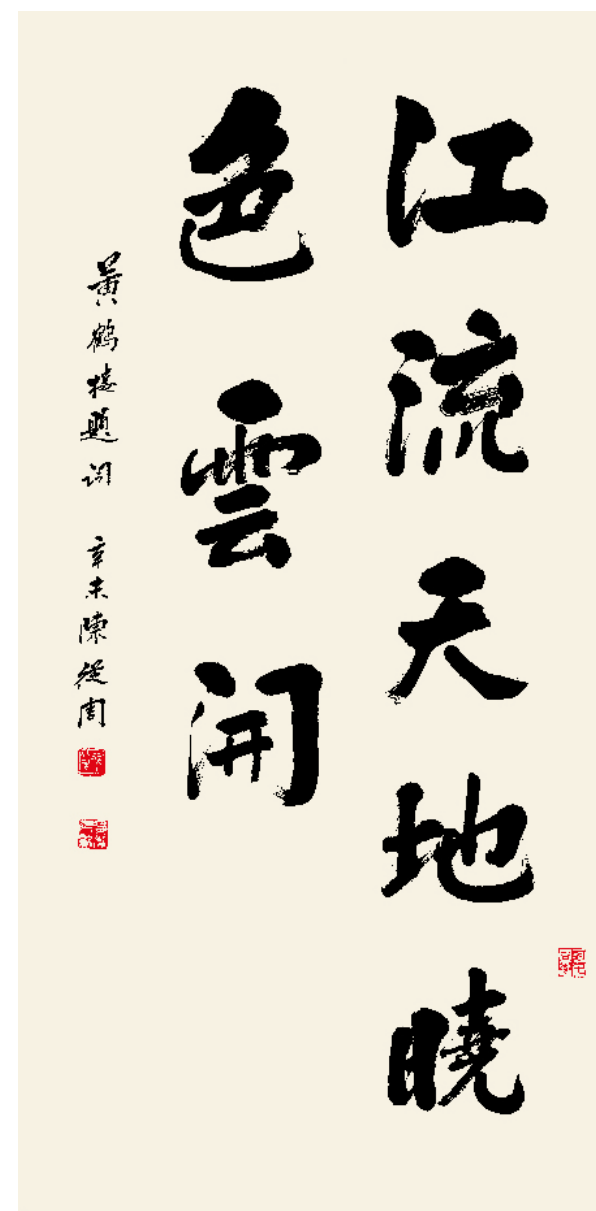 江流天地曉
色雲開
黃鶴樓題詞 辛未陳從周